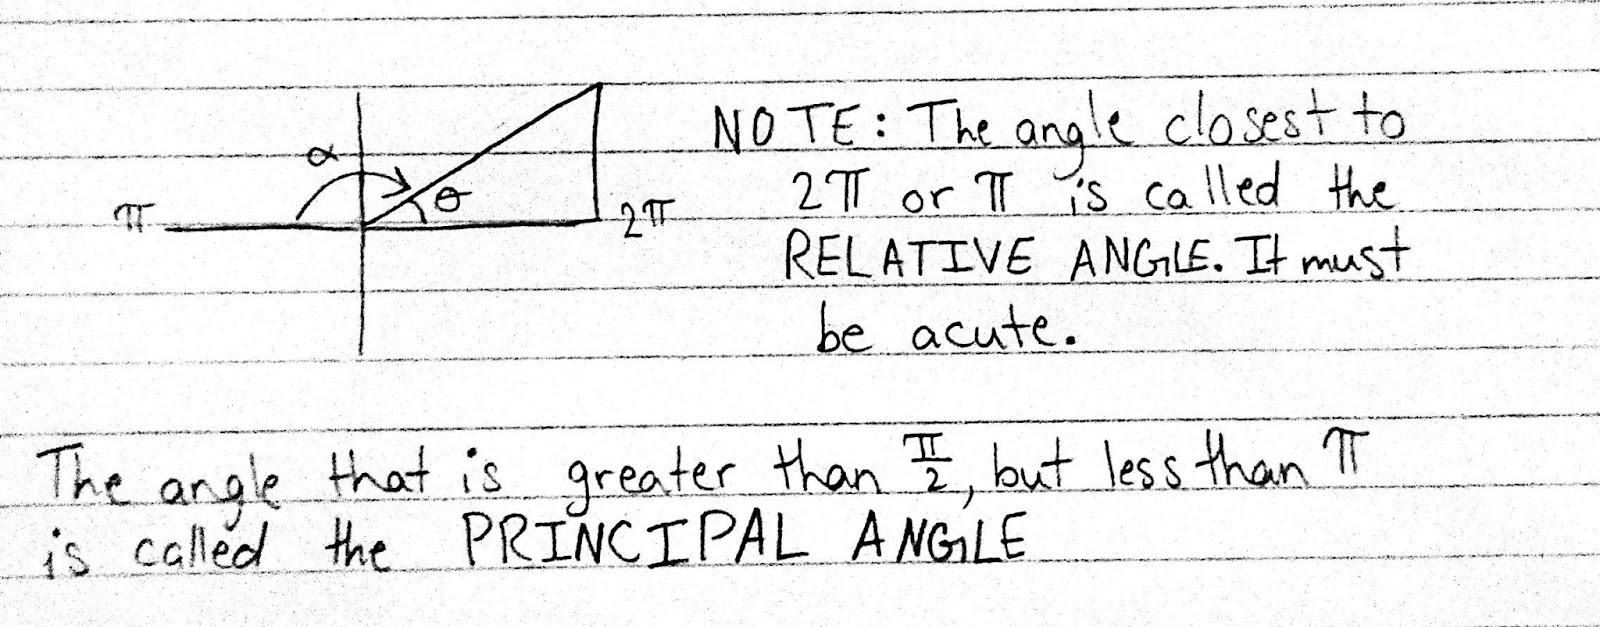 α
θ
π
2π
NOTE: The angle closest to
2π or π is called the
RELATIVE ANGLE. It must
be acute.
The angle that is greater than π/2, but less than π
is called the PRINCIPAL ANGLE